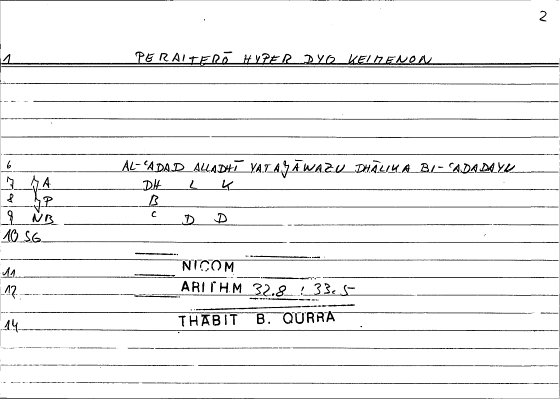 2
1 PERAITERŌ HYPER DYO KEIMENON
6 AL-ʿADAD ALLADHĪ YATAǧĀWAZU DHĀLIKA BI-ʿADADAYN
7 ǧA DH L K
8 ǧP B
9 NB ʿ D D
10 SG
11 NICOM
12 ARITHM 32.8 : 33.5
14 THĀBIT B. QURRA